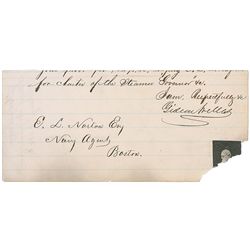 for charter of the Steamer Governor &c.
I am, Respectfully &c
Gideon Welles
E. L. Norton Esq
Navy Agent
Boston.